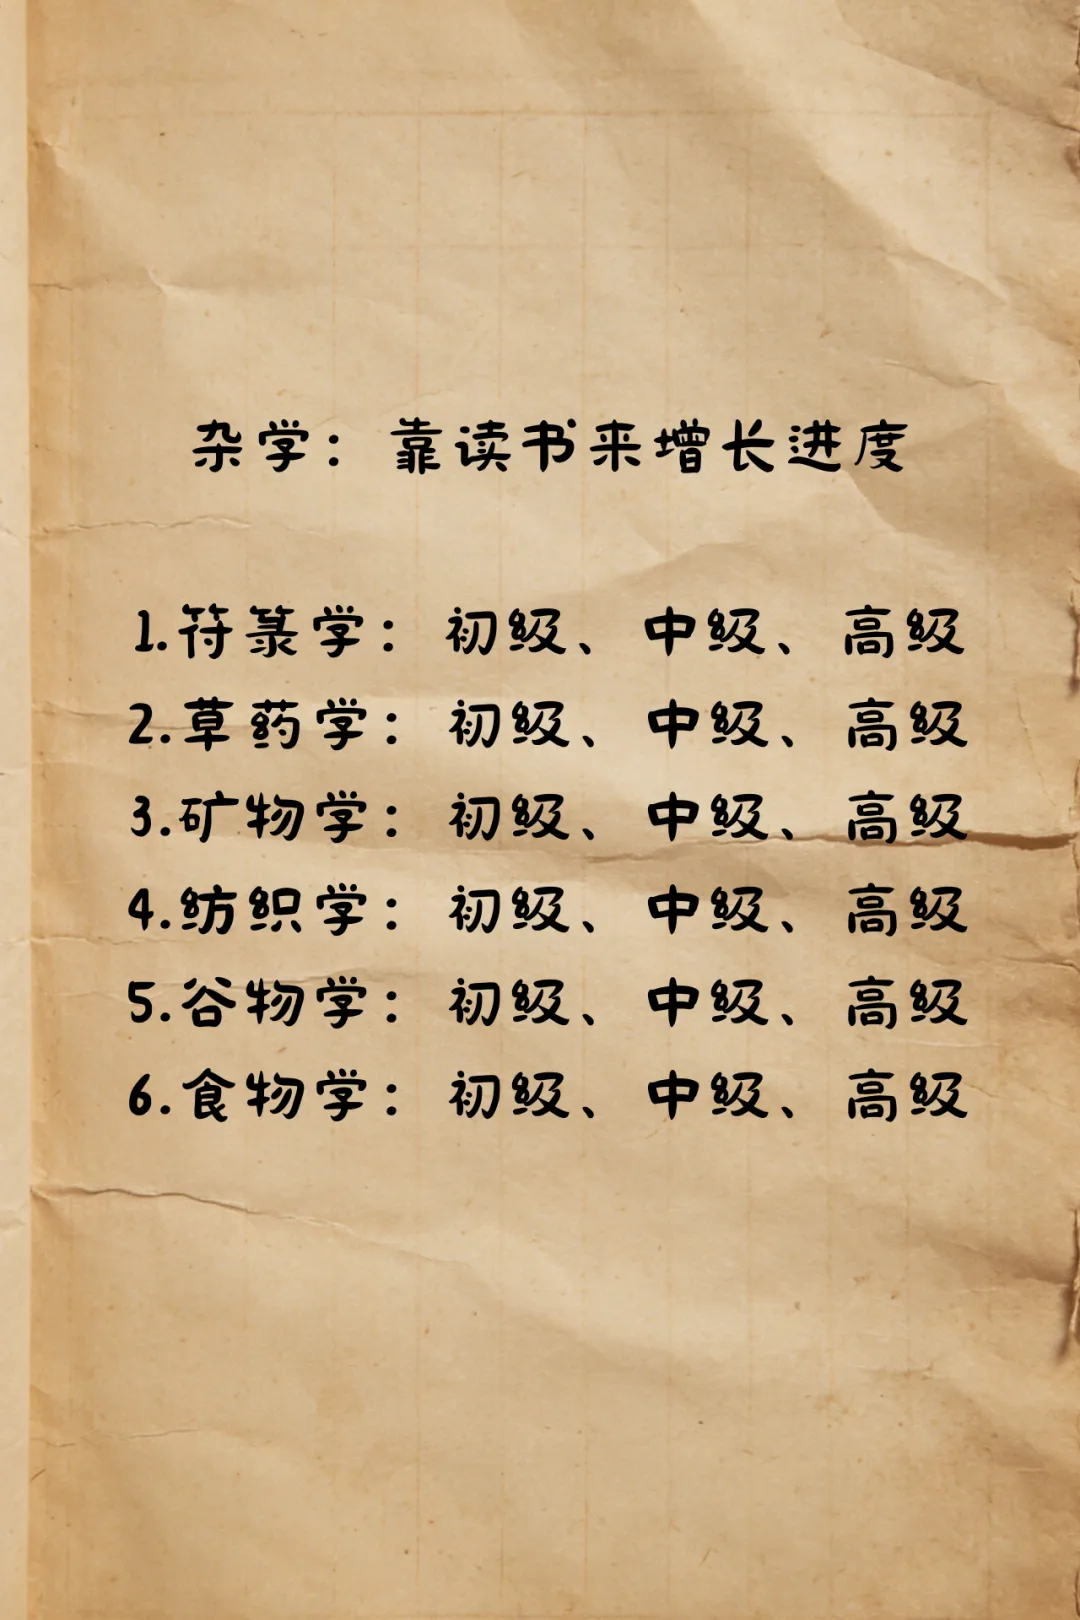 杂学：靠读书来增长进度
1.符箓学：初级、中级、高级
2.草药学：初级、中级、高级
3.矿物学：初级、中级、高级
4.纺织学：初级、中级、高级
5.谷物学：初级、中级、高级
6.食物学：初级、中级、高级